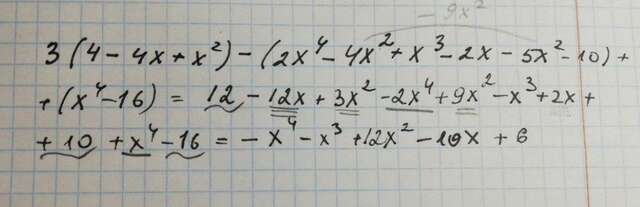 - 9x²
3(4-4x+x²)-(2x⁴-4x²+x³-2x-5x²-10)+
+(x⁴-16) = 12-12x+3x²-2x⁴+9x²-x³+2x+
+10+x⁴-16=-x⁴-x³+12x²-10x+6